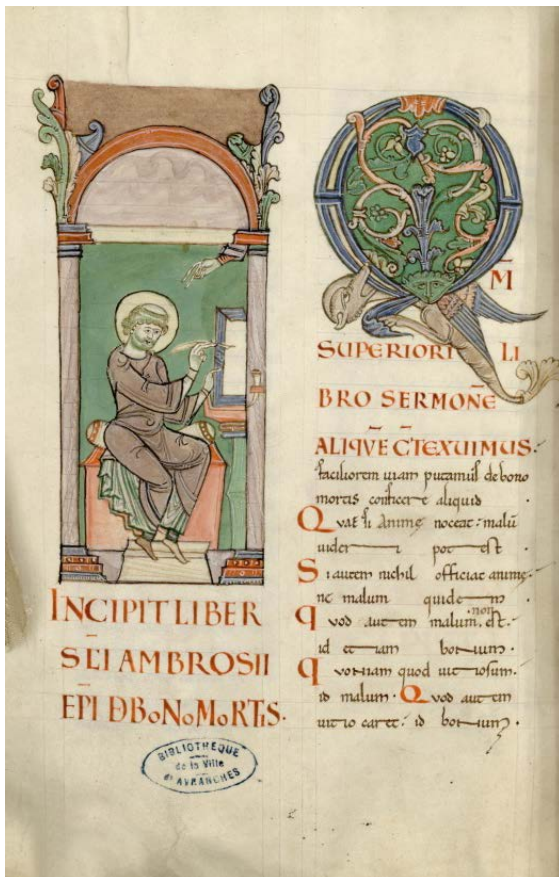 INCIPIT LIBER
SC̄I AMBROSII
EP̄I D̄ BONO MORTIS.
BIBLIOTHEQUE
de la Ville
d'AVRANCHES
Q
M̄
SUPERIORI LI
BRO SERMONĒ
ALIQVĒ C̄TEXUIMUS.
faciliorem uiam putamus de bono
mortis conficere aliquid
Quae si animę noceat: malū
uideri potest
Si autem nichil officiat animę
nc malum quidem
quod autem malum non est.
id etiam bonum.
quoniam quod uitiosum.
id malum. Quod autem
uitio caret: id bonum.